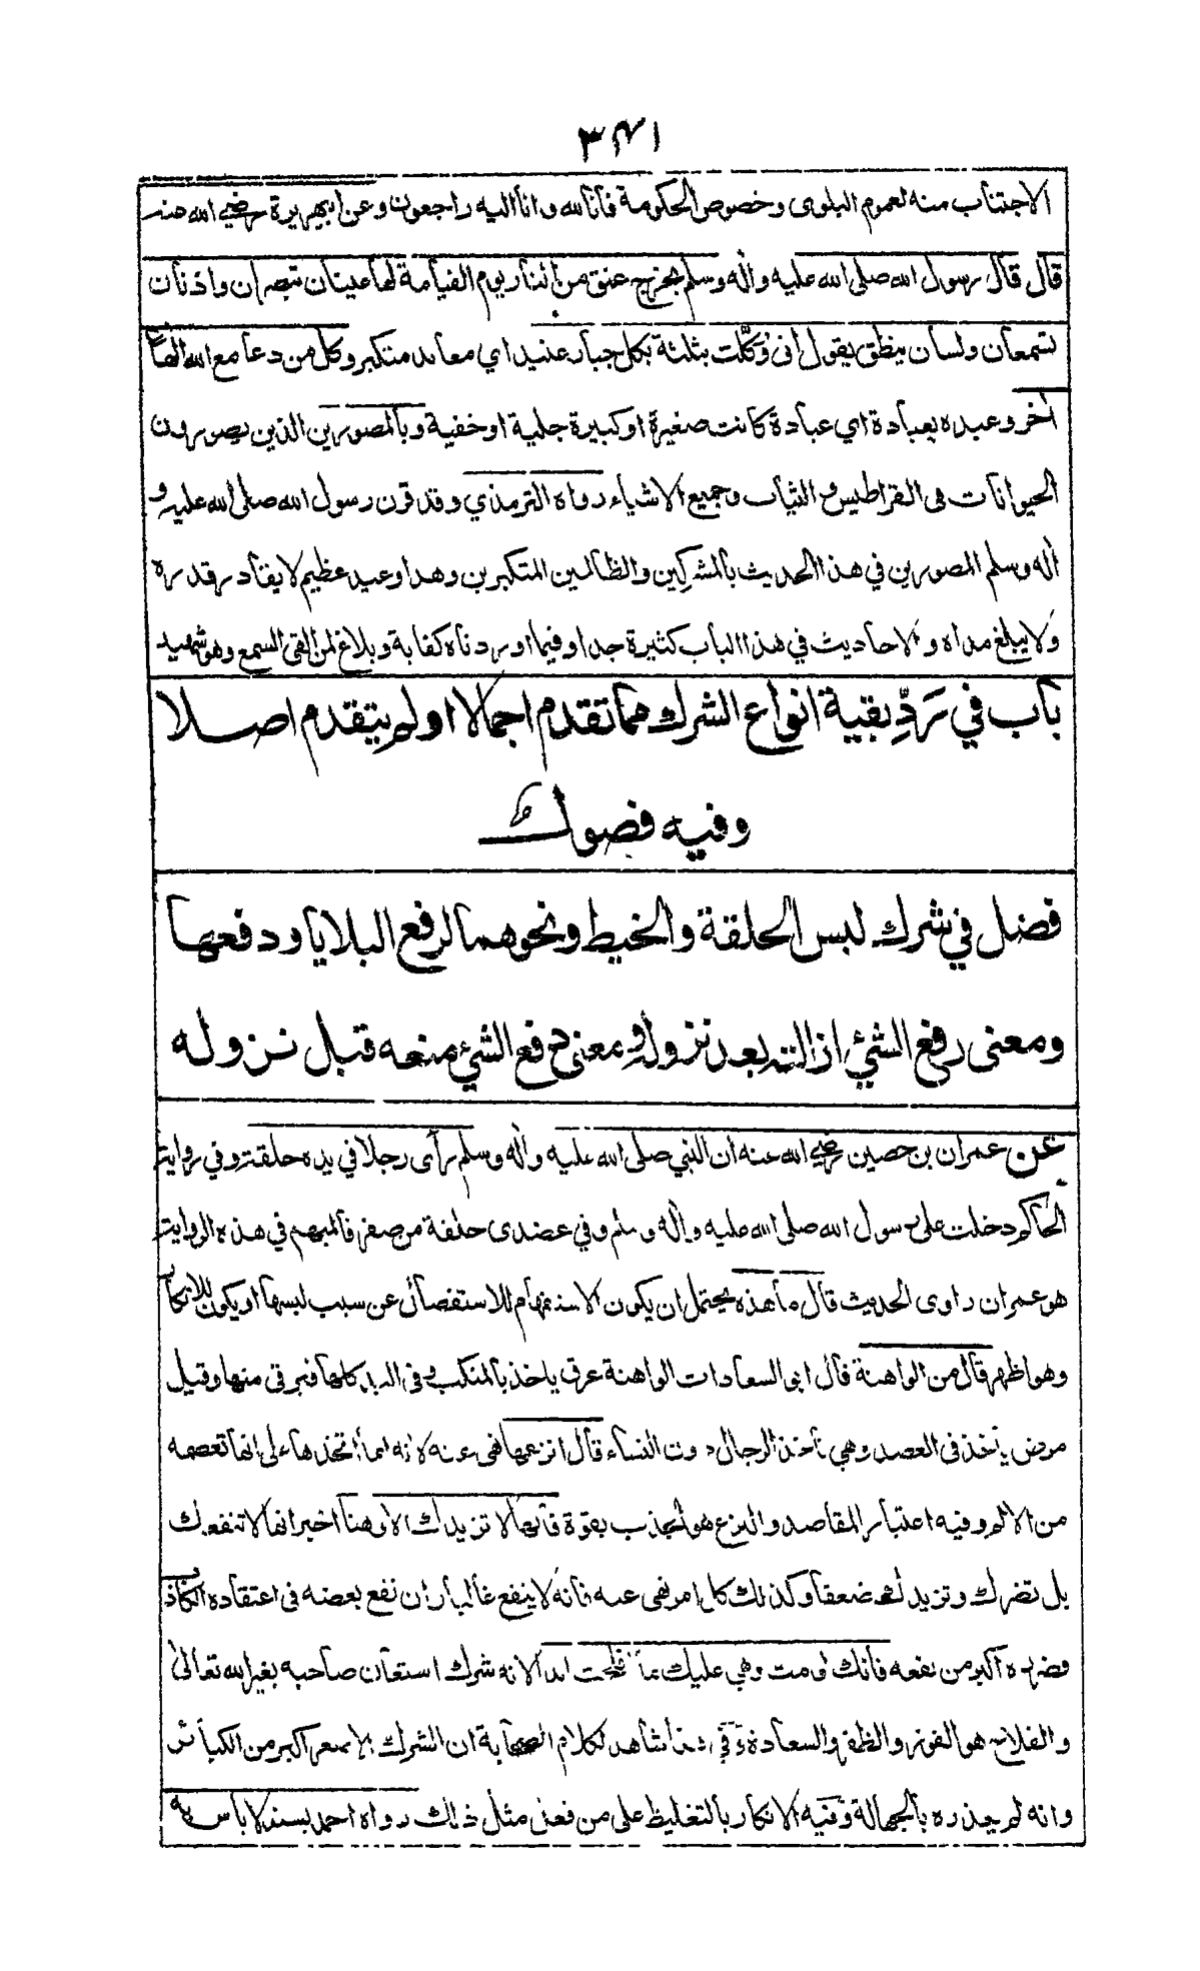 ٣٤١
الاجتناب منه لعموم البلوى وخصوص الحكومة فانا لله وانا اليه راجعون وعن ابي هريرة رضي الله عنه
قال قال رسول الله صلى الله عليه واله وسلم يخرج عنق من النار يوم القيامة لها عينان تبصران واذنان
تسمعان ولسان ينطق يقول انى وُكّلت بثلثة بكل جبار عنيد اي معاند متكبر وكل من دعا مع الله الها
اخر وعبده بعبادة اي عبادة كانت صغيرة او كبيرة جلية او خفية وبالمصورين الذين يصورون
الحيوانات فى القراطيس والثياب وجميع الاشياء رواه الترمذي وقد قرن رسول الله صلى الله عليه و
اله وسلم المصورين في هذا الحديث بالمشركين والظالمين المتكبرين وهذا وعيد عظيم لا يقادر قدره
ولا يبلغ مداه والاحاديث في هذا الباب كثيرة جدا وفيما اوردناه كفاية وبلاغ لمن القى السمع وهو شهيد
باب في رَدِّ بقية انواع الشرك مما تقدم اجمالا او لم يتقدم اصلا
وفيه فصول
فصل في شرك لبس الحلقة والخيط ونحوهما لرفع البلايا ودفعها
ومعنى رفع الشئ ازالته بعد نزوله ومعنى دفع الشئ منعه قبل نزوله
عن عمران بن حصين رضي الله عنه ان النبي صلى الله عليه واله وسلم رأى رجلا في يده حلقة وفي رواية
الحاكم دخلت على رسول الله صلى الله عليه واله وسلم وفي عضدى حلقة من صفر فالمبهم في هذه الرواية
هو عمران راوى الحديث قال ما هذه يحتمل ان يكون الاستفهام للاستفصال عن سبب لبسها او يكون للانكار
وهو اظهر قال من الواهنة قال ابى السعادات الواهنة عرق ياخذ بالمنكب وفى اليد كلها فيرقى منها وقيل
مرض يأخذ فى العضد وهي تأخذ الرجال دون النساء قال انزعها نهى عنه لانه انما اتخذها على انها تعصمه
من الالم وفيه اعتبار المقاصد والنزع هو الجذب بقوة فانها لا تزيدك الا وهنا اخبر انها لا تنفعك
بل تضرك وتزيدك ضعفا وكذلك كل امر نهى عنه فانه لا ينفع غالبا وان نفع بعضه فى اعتقاده الكاذب
فضرره اكبر من نفعه فانك لو مت وهي عليك ما افلحت ابدا لانه شرك استعان صاحبه بغير الله تعالى
والفلاح هو الفوز والظفر والسعادة وفي هذا شاهد لكلام الصحابة ان الشرك الاصغر اكبر من الكبائر
وانه لم يعذره بالجهالة وفيه الانكار بالتغليظ على من فعل مثل ذلك رواه احمد بسند لا باس به